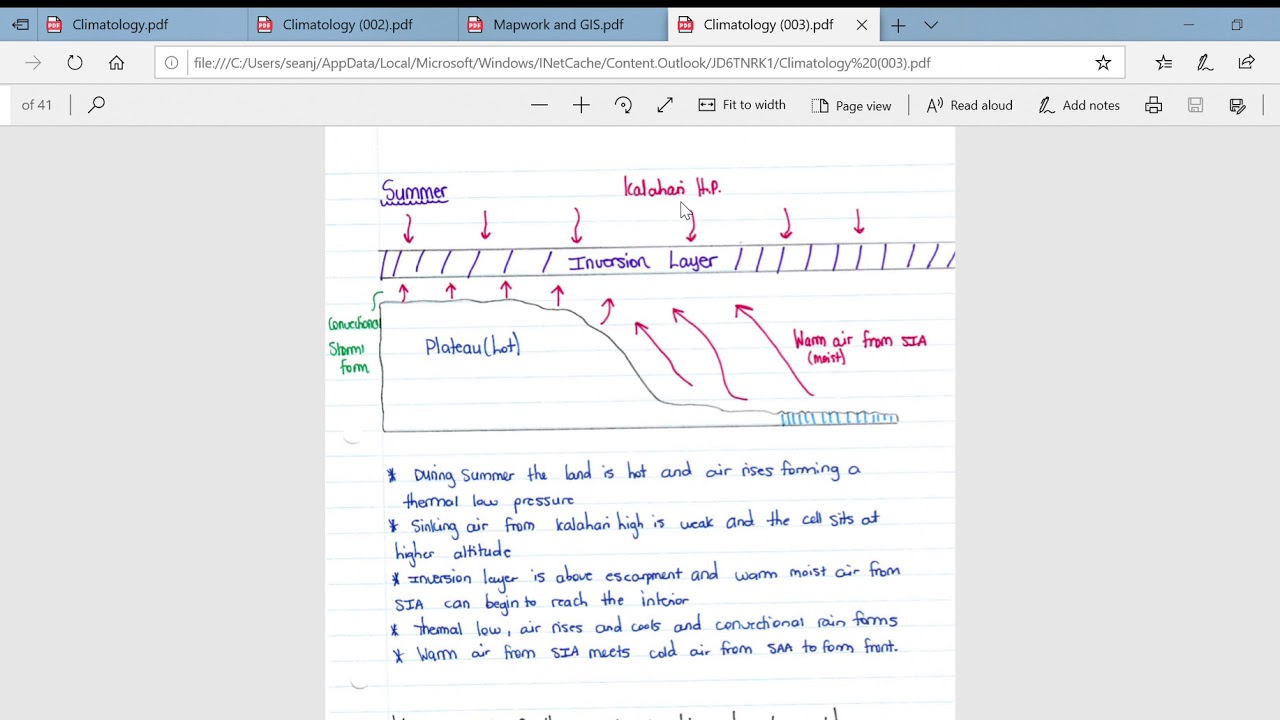 Climatology.pdf
Climatology (002).pdf
Mapwork and GIS.pdf
Climatology (003).pdf
file:///C:/Users/seanj/AppData/Local/Microsoft/Windows/INetCache/Content.Outlook/JD6TNRK1/Climatology%20(003).pdf
of 41
Fit to width
Page view
Read aloud
Add notes
Summer
Kalahari H.P.
Inversion Layer
Convectional
Storms
form
Plateau (hot)
Warm air from SIA
(moist)
* During Summer the land is hot and air rises forming a
thermal low pressure
* Sinking air from kalahari high is weak and the cell sits at
higher altitude
* Inversion layer is above escarpment and warm moist air from
SIA can begin to reach the interior
* Thermal low, air rises and cools and convectional rain forms
* Warm air from SIA meets cold air from SAA to form front.